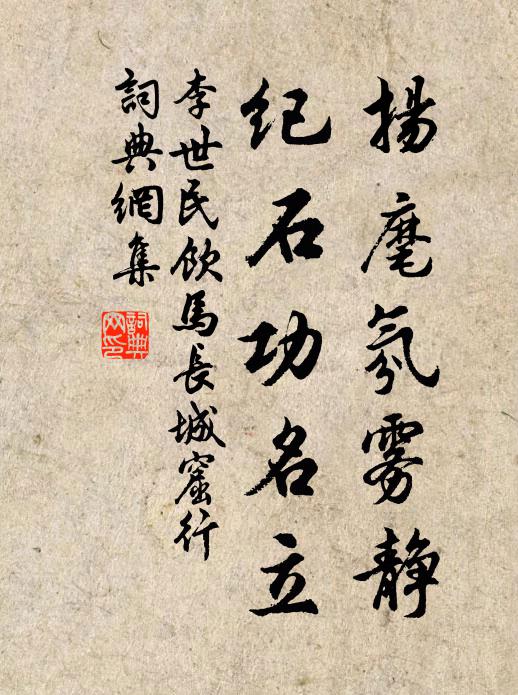 揚麾氛雾静
纪石功名立
李世民飲馬長城窟行
詞典網集
詞典
网印